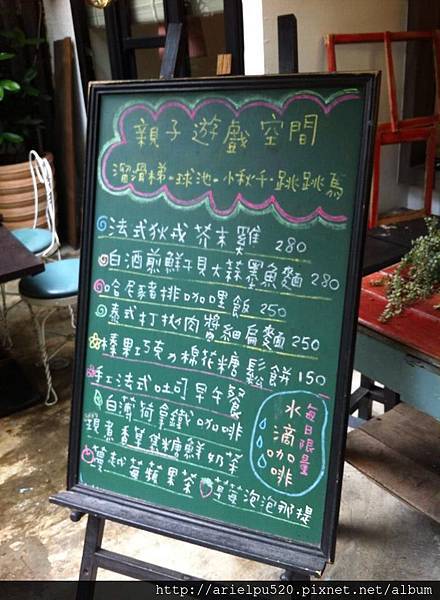 親子遊戲空間
溜滑梯·球池·小秋千·跳跳馬
法式狄戎芥末雞 280
白酒煎鮮干貝大蒜墨魚麵 280
哈尼豬排咖哩飯 250
泰式打拋肉醬細扁麵 250
榛果巧克力棉花糖鬆餅 150
手工法式吐司早午餐
白薄荷拿鐵咖啡
鍋煮香蕉焦糖鮮奶茶
蔓越莓蘋果茶 草莓泡泡那提
每日限量
水滴咖啡
http://arielpu520.pixnet.net/album